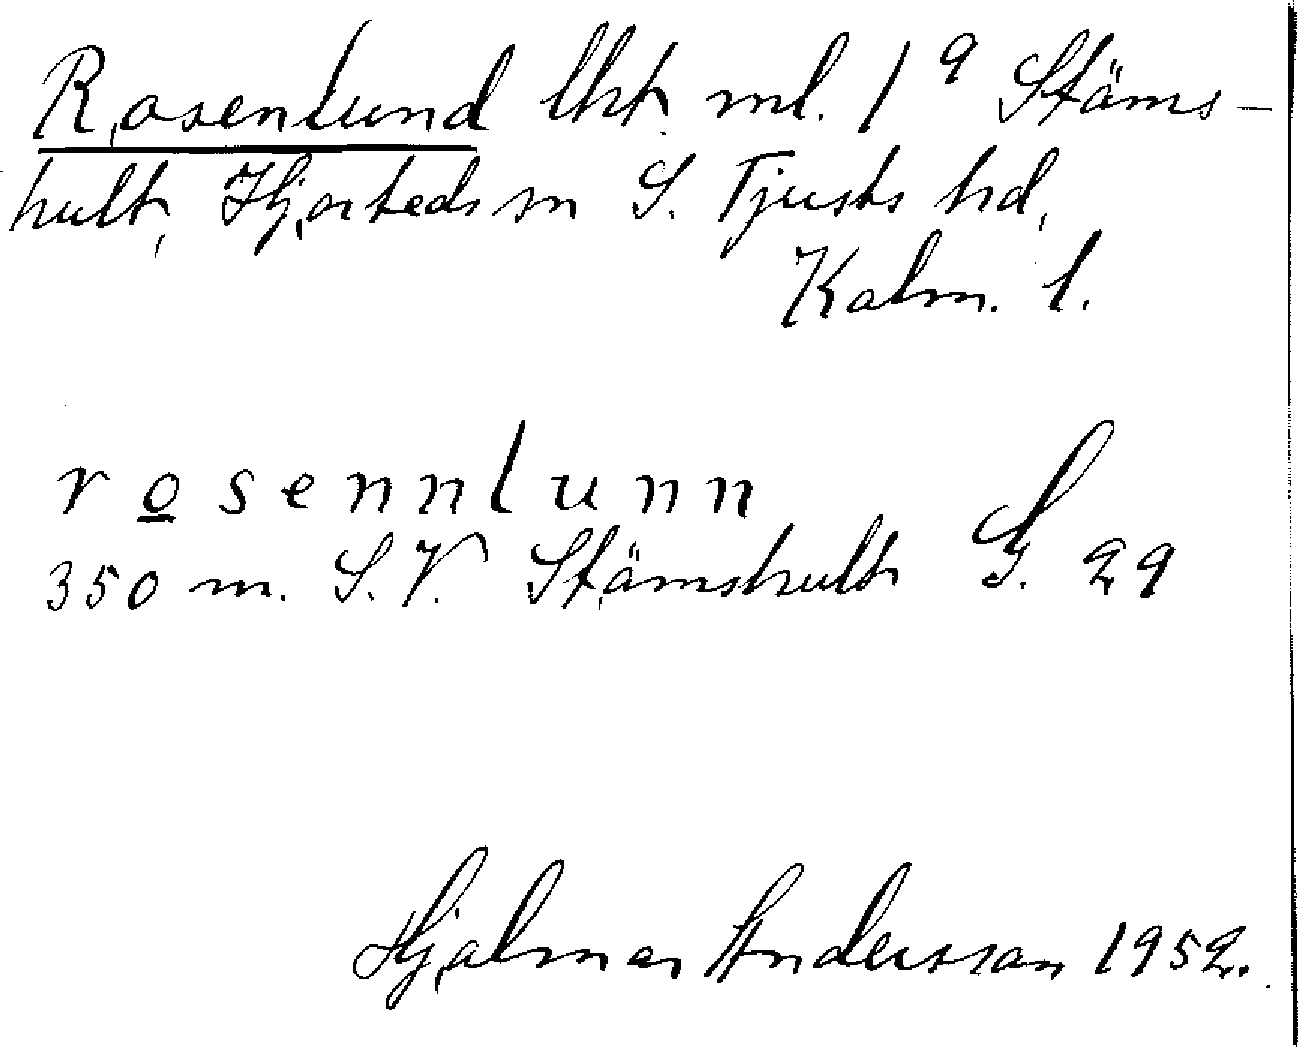 Rosenlund lht. ml. 1⁹ Stäms-
hult, Hjorteds sn S. Tjusts hd,
Kalm. l.
rosennlunn
350 m. S.V. Stämshult G. 29
Hjalmar Andersson 1952.